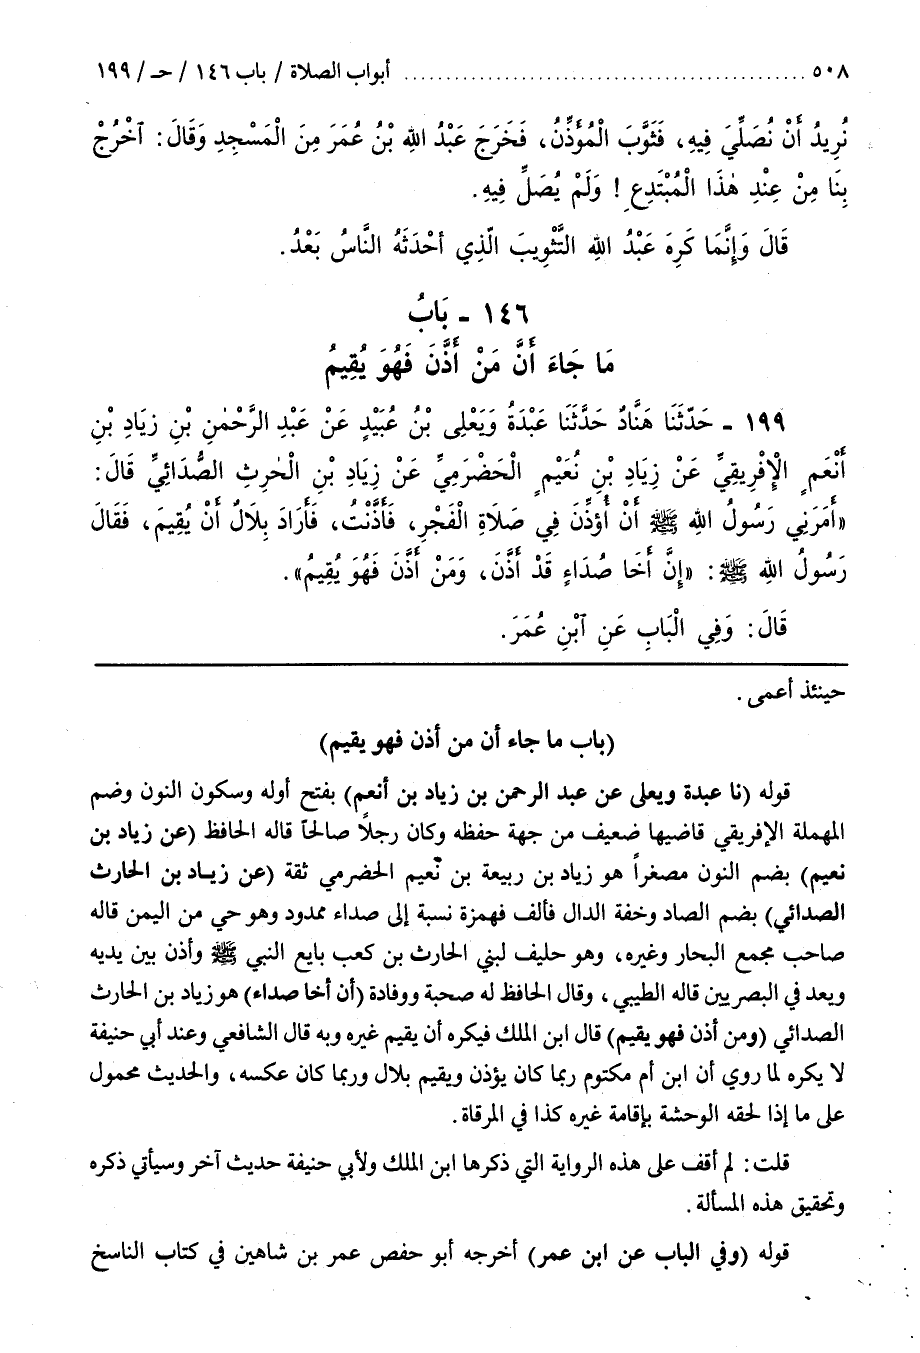 ٥٠٨ ................................................ أبواب الصلاة / باب ١٤٦ / حـ / ١٩٩
نُرِيدُ أَنْ نُصَلِّيَ فِيهِ، فَثَوَّبَ الْمُؤَذِّنُ، فَخَرَجَ عَبْدُ اللهِ بْنُ عُمَرَ مِنَ الْمَسْجِدِ وَقَالَ: ٱخْرُجْ
بِنَا مِنْ عِنْدِ هٰذَا الْمُبْتَدِعِ! وَلَمْ يُصَلِّ فِيهِ.
قَالَ وَإِنَّمَا كَرِهَ عَبْدُ اللهِ التَّثْوِيبَ الَّذِي أحْدَثَهُ النَّاسُ بَعْدُ.
١٤٦ - بَابُ
مَا جَاءَ أَنَّ مَنْ أَذَّنَ فَهُوَ يُقِيمُ
١٩٩ - حَدَّثَنَا هَنَّادٌ حَدَّثَنَا عَبْدَةُ وَيَعْلِى بْنُ عُبَيْدٍ عَنْ عَبْدِ الرَّحْمٰنِ بْنِ زِيَادِ بْنِ
أَنْعَمٍ الْإِفْرِيقِيِّ عَنْ زِيَادِ بْنِ نُعَيْمٍ الْحَضْرَمِيِّ عَنْ زِيَادِ بْنِ الْحٰرِثِ الصُّدَائِيِّ قَالَ:
«أَمَرَنِي رَسُولُ اللهِ ﷺ أَنْ أُؤَذِّنَ فِي صَلَاةِ الْفَجْرِ، فَأَذَّنْتُ، فَأَرَادَ بِلَالٌ أَنْ يُقِيمَ، فَقَالَ
رَسُولُ اللهِ ﷺ: «إِنَّ أَخَا صُدَاءٍ قَدْ أَذَّنَ، وَمَنْ أَذَّنَ فَهُوَ يُقِيمُ».
قَالَ: وَفِي الْبَابِ عَنِ ٱبْنِ عُمَرَ.
حينئذ أعمى.
(باب ما جاء أن من أذن فهو يقيم)
قوله (نا عبدة ويعلى عن عبد الرحمن بن زياد بن أنعم) بفتح أوله وسكون النون وضم
المهملة الإفريقي قاضيها ضعيف من جهة حفظه وكان رجلاً صالحاً قاله الحافظ (عن زياد بن
نعيم) بضم النون مصغراً هو زياد بن ربيعة بن نُعيم الحضرمي ثقة (عن زياد بن الحارث
الصدائي) بضم الصاد وخفة الدال فألف فهمزة نسبة إلى صداء ممدود وهو حي من اليمن قاله
صاحب مجمع البحار وغيره، وهو حليف لبني الحارث بن كعب بايع النبي ﷺ وأذن بين يديه
ويعد في البصريين قاله الطيبي، وقال الحافظ له صحبة ووفادة (أن أخا صداء) هو زياد بن الحارث
الصدائي (ومن أذن فهو يقيم) قال ابن الملك فيكره أن يقيم غيره وبه قال الشافعي وعند أبي حنيفة
لا يكره لما روي أن ابن أم مكتوم ربما كان يؤذن ويقيم بلال وربما كان عكسه، والحديث محمول
على ما إذا لحقه الوحشة بإقامة غيره كذا في المرقاة.
قلت: لم أقف على هذه الرواية التي ذكرها ابن الملك ولأبي حنيفة حديث آخر وسيأتي ذكره
وتحقيق هذه المسألة.
قوله (وفي الباب عن ابن عمر) أخرجه أبو حفص عمر بن شاهين في كتاب الناسخ